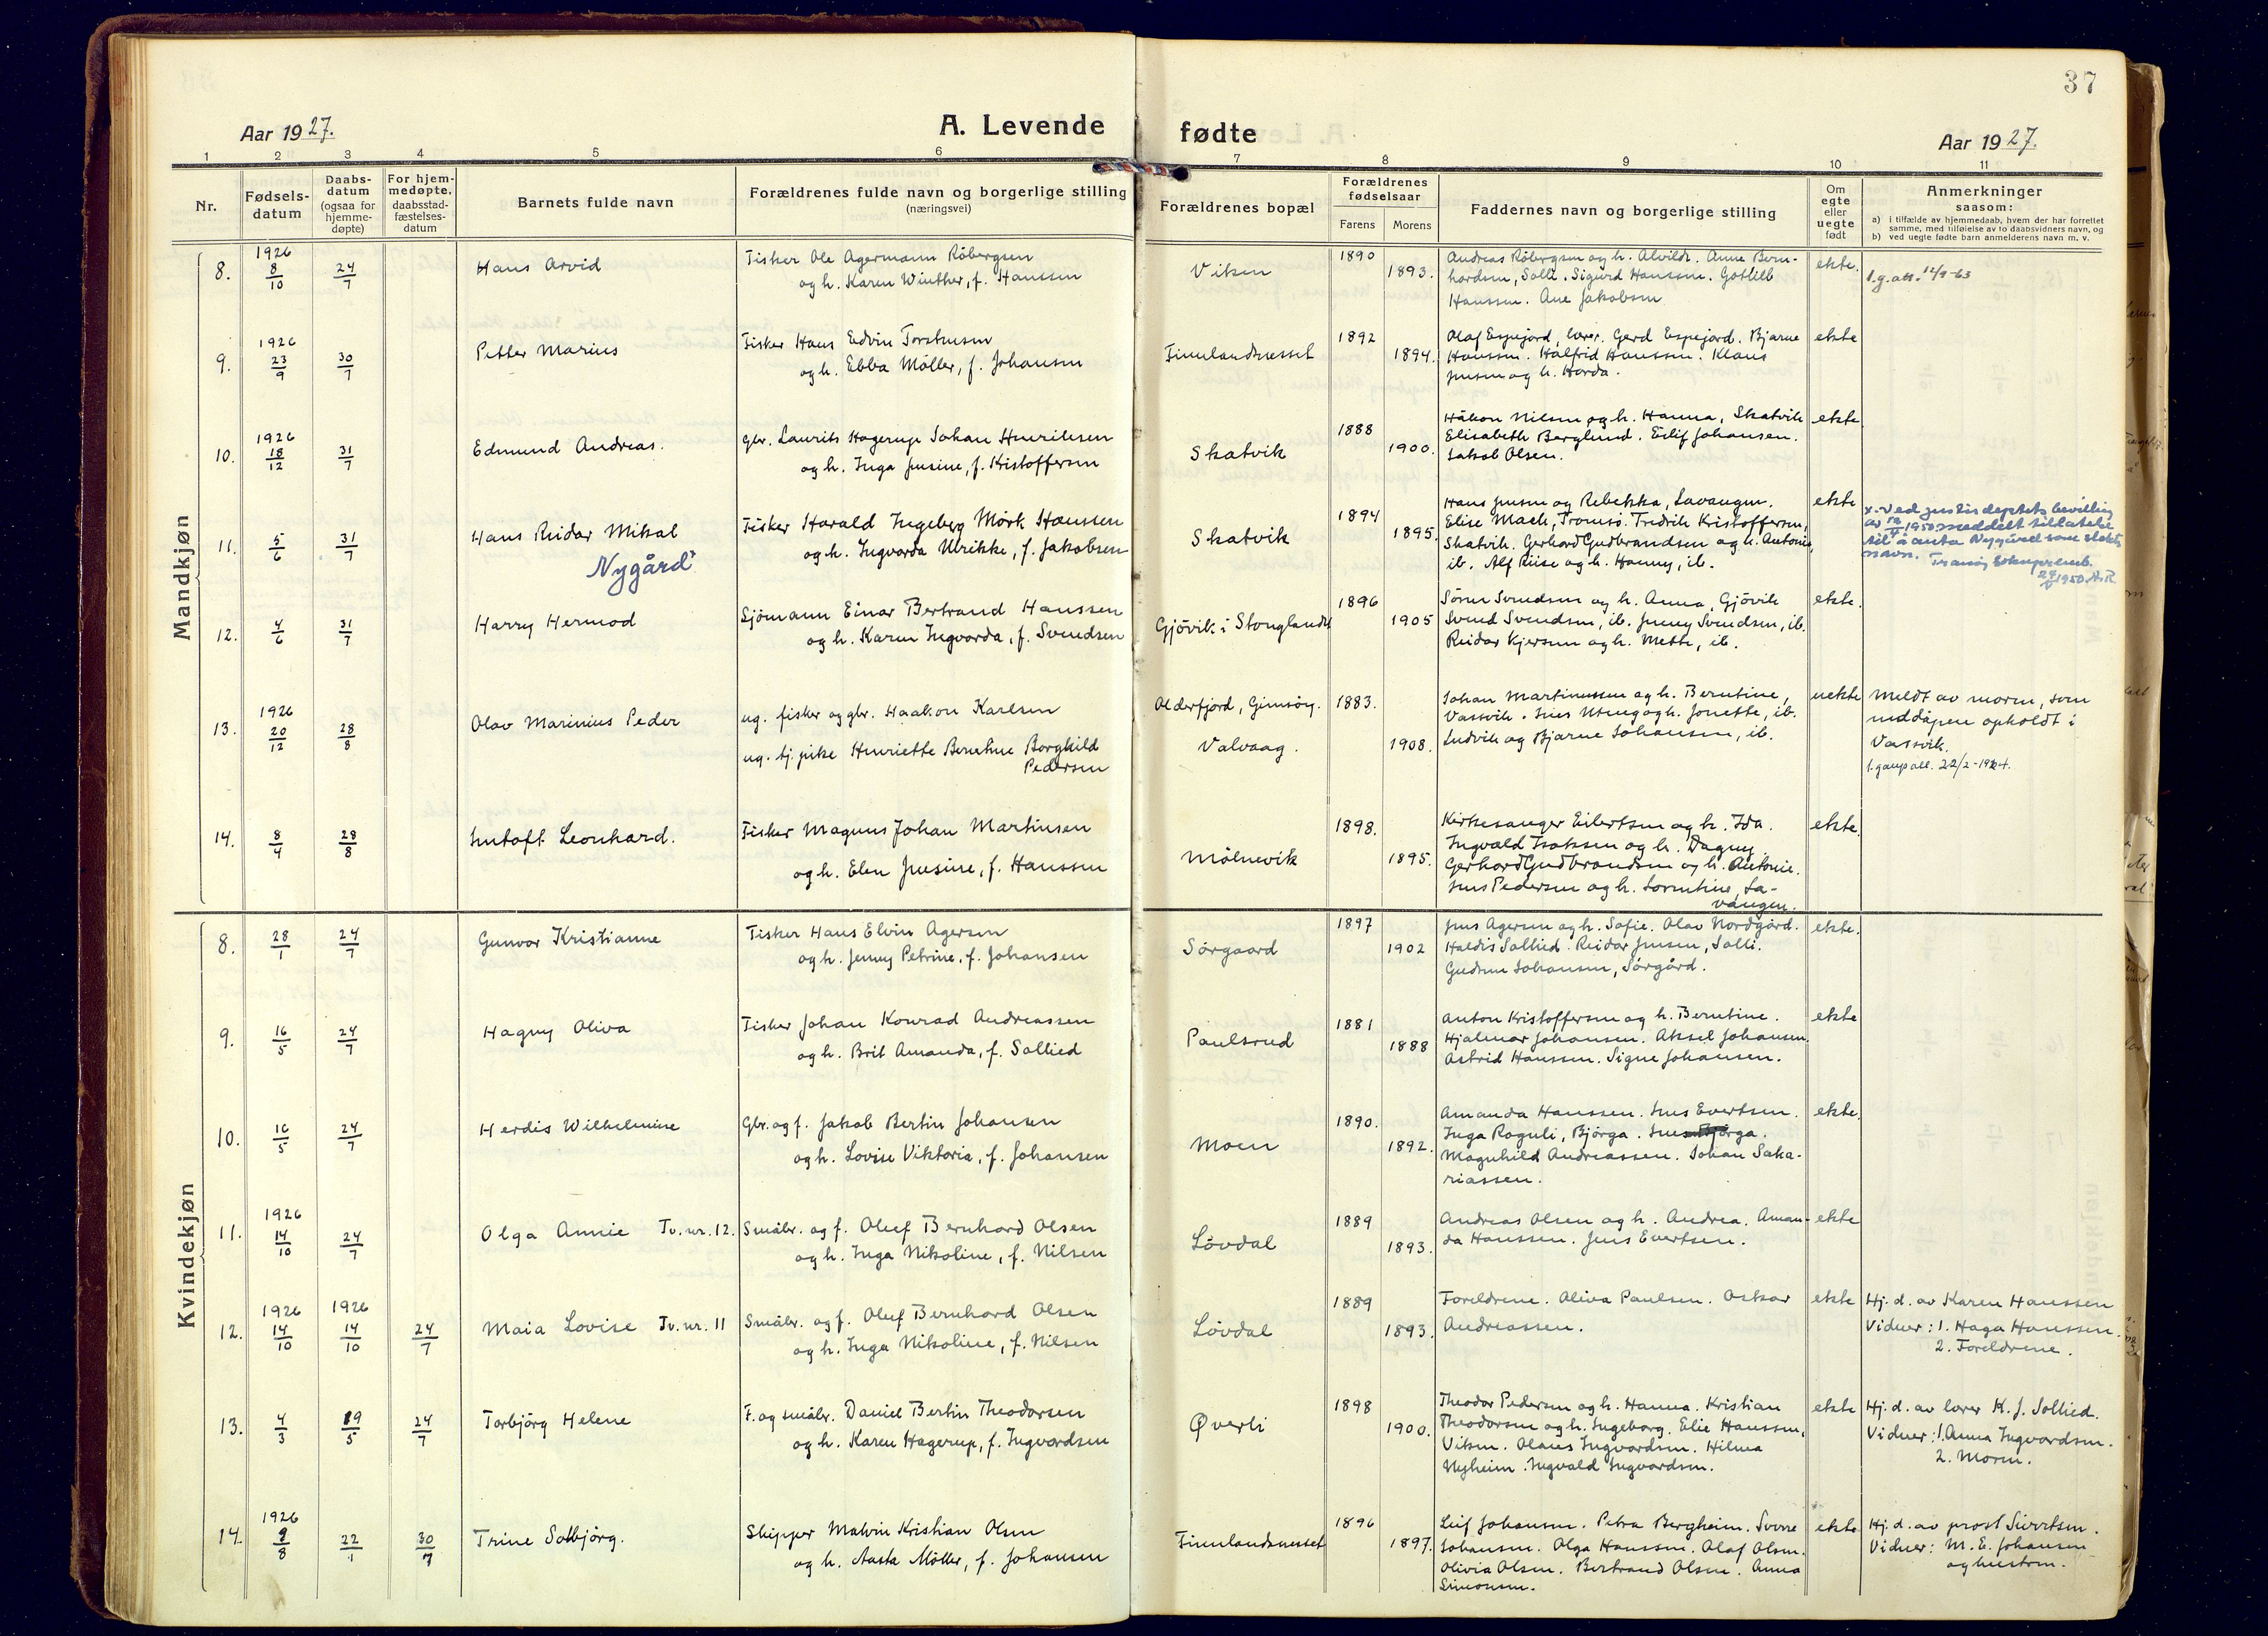 37
Aar 1927.
A. Levende fødte
Aar 1927.
1 2 3 4 5 6 7 8 9 10 11
Nr.
Fødsels-
datum
Daabs-
datum
(ogsaa for
hjemme-
døpte)
For hjem-
medøpte,
daabsstad-
fæstelses-
datum
Barnets fulde navn
Forældrenes fulde navn og borgerlige stilling
(næringsvei)
Forældrenes bopæl
Forældrenes
fødselsaar
Farens Morens
Faddernes navn og borgerlige stilling
Om
egte
eller
uegte
født
Anmerkninger
saasom:
a) i tilfælde av hjemmedaab, hvem der har forrettet
samme, med tilføielse av to daabsvidners navn, og
b) ved uegte fødte barn anmelderens navn m. v.
Mandkjøn
8.
1926
8/10
24/7
Hans Arvid
Fisker Ole Agermann Röbergsen
og h. Karen Winther, f. Hanssen
Viken
1890
1893.
Andreas Röbergsen og h. Alvilde. Anne Bern-
hardsen, Solli. Sigurd Hanssen. Gotlieb
Hanssen. Ane Jakobsen
ekte.
l.g.att. 12/9-63
9.
1926
23/9
30/7
Petter Marius
Fisker Hans Edvin Torstensen
og h. Ebba Möller, f. Johansen
Finnlandsnesset
1892
1894.
Olaf Espejord, lærer. Gerd Espejord. Bjarne
Hanssen. Halfrid Hanssen. Klaus
Jensen og h. Harda.
ekte
10.
1926
18/12
31/7
Edmund Andreas.
Gbr. Laurits Hagerup Johan Henriksen
og h. Inga Jensine, f. Kristoffersen
Skatvik
1888
1900.
Håkon Nilsen og h. Hanna, Skatvik
Elisabeth Berglund. Eilif Johansen.
Jakob Olsen.
ekte
11.
5/6
31/7
Hans Reidar Mikal
Nygård x
Fisker Harald Ingeberg Mörk Hanssen
og h. Ingvarda Ulrikke, f. Jakobsen
Skatvik
1894
1895.
Hans Jensen og Rebekka, Lavangen.
Elise Mack, Tromsö. Fredrik Kristoffersen,
Skatvik. Gerhard Gudbrandsen og h. Antonie,
ib. Alf Riise og h. Hanny, ib.
ekte
x. Ved justisdeptets bevilling
1950 meddelt tillatelse
til å anta Nygård som slekts
navn. Tranöy sokneprestemb.
1950. A.R.
12.
4/6
31/7
Harry Hermod
Sjömann Einar Bertrand Hanssen
og h. Karen Ingvarda, f. Svendsen
Gjövik i Stonglandet
1896
1905
Sören Svendsen og h. Anna, Gjövik
Svend Svendsen, ib. Jenny Svendsen, ib.
Reidar Kjersen og h. Mette, ib.
ekte.
13.
1926
20/12
28/8
Olav Marinius Peder
ug. fisker og gbr. Haakon Karlsen
ug. tj. pike Henriette Berntine Borghild
Pedersen
Alderfjord, Gimsöy.
Valvaag.
1883.
1908.
Johan Martinussen og h. Berntine,
Vassvik. Jens Uteng og h. Jonette, ib.
Ludvik og Bjarne Johansen, ib.
uekte
Meldt av moren, som
ved dåpen opholdt i
Vassvik.
l. gaupatt. 22/2-1924.
14.
8/4
28/8
Leonhard.
Fisker Magnus Johan Martinsen
og h. Elen Jensine, f. Hanssen
Mölnevik
1898.
1895.
Kirkesanger Eilertsen og h. Ida.
Ingvald Isaksen og h. Dagny.
Gerhard Gudbrandsen og h. Antonie.
Jens Pedersen og h. Lorentine, La-
vangen.
ekte.
Kvindekjøn
8.
28/1
24/7
Gunvor Kristianne
Fisker Hans Elvin Agersen
og h. Jenny Petrine, f. Johansen
Sörgaard
1897
1902
Jens Agersen og h. Sofie. Olav Nordgård.
Haldis Sollied. Reidar Jensen, Solli.
Gudrun Johansen, Sörgård.
ekte.
9.
16/5
24/7
Hagny Oliva
Fisker Johan Konrad Andreassen
og h. Brit Amanda, f. Sollied
Paulsrud
1881
1888
Anton Kristoffersen og h. Berntine.
Hjalmar Johansen. Aksel Johansen.
Astrid Hanssen. Signe Johansen.
ekte
10.
16/5
24/7
Herdis Wilhelmine
Gbr. og f. Jakob Bertin Johansen
og h. Lovise Viktoria, f. Johansen
Moen
1890.
1892.
Amanda Hanssen. Jens Evertsen.
Inga Roguli, Björga. Björga.
Magnhild Andreassen. Johan Saka-
riassen.
ekte.
11.
1926
14/10
24/7
Olga Annie Tv. nr. 12.
Småbr. og f. Oluf Bernhard Olsen
og h. Inga Nikoline, f. Nilsen
Lövdal
1889
1893.
Andreas Olsen og h. Andrea. Aman-
da Hanssen. Jens Evertsen.
ekte
12.
1926
14/10
1926
14/10
24/7
Maia Lovise Tv. nr. 11
Småbr. og f. Oluf Bernhard Olsen
og h. Inga Nikoline, f. Nilsen
Lövdal
1889
1893.
Foreldrene. Oliva Paulsen. Oskar
Andreassen.
ekte
Hj. d. av Karen Hanssen
Vidner: 1. Haga Hanssen.
2. Foreldrene.
13.
4/3
19/5
24/7
Torbjörg Helene
F. og småbr. Daniel Bertin Theodorsen
og h. Karen Hagerup, f. Ingvardsen
Øverli
1898
1900.
Theodor Pedersen og h. Hanna. Kristian
Theodorsen og h. Ingeborg. Elie Hanssen,
Viken. Olaus Ingvardsen. Hilma
Nyheim. Ingvald Ingvardsen.
ekte
Hj. d. av lærer K. J. Sollied.
Vidner: 1. Anna Ingvardsen.
2. Moren.
14.
1926
9/8
22/1
30/7
Trine Solbjörg.
Skipper Malvin Kristian Olsen
og h. Aasta Möller, f. Johansen
Finnlandsnesset
1896
1897.
Leif Johansen. Petra Bergheim. Sverre
Johansen. Olga Hanssen. Olaf Olsen.
Olivia Olsen. Bertrand Olsen. Anna
Simonsen.
ekte
Hj. d. av prost Sivertsen.
Vidner: M. E. Johansen
og hustru.